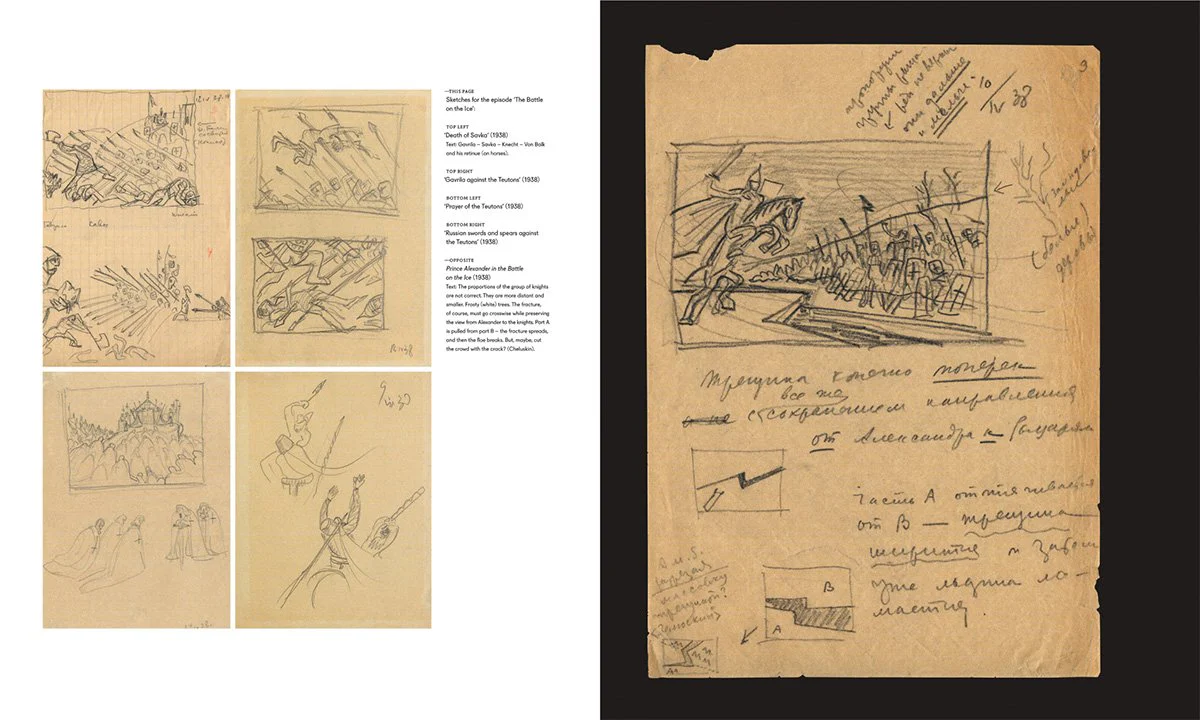 12 IV 38
—THIS PAGE
Sketches for the episode 'The Battle
on the Ice':
TOP LEFT
'Death of Savka' (1938)
Text: Gavrilo – Savka – Knecht – Von Balk
and his retinue (on horses).
TOP RIGHT
'Gavrilo against the Teutons' (1938)
BOTTOM LEFT
'Prayer of the Teutons' (1938)
BOTTOM RIGHT
'Russian swords and spears against
the Teutons' (1938)
—OPPOSITE
Prince Alexander in the Battle
on the Ice (1938)
Text: The proportions of the group of knights
are not correct. They are more distant and
smaller. Frosty (white) trees. The fracture,
of course, must go crosswise while preserving
the view from Alexander to the knights. Part A
is pulled from part B – the fracture spreads,
and then the floe breaks. But, maybe, cut
the crowd with the crack? (Cheluskin).
3
пропорции
группы
они дальше
и мельче
10
IV 38
(белые)
Трещина конечно поперек
все же
с сохранением направления
от Александра к Рыцарям
Часть А оттягивается
от В — трещина
ширится и затем
уже льдина ло-
мается.
B
A